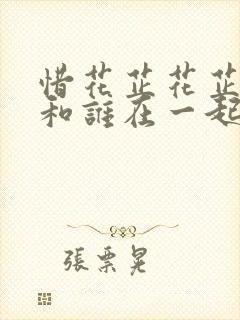 惜花芷花芷
和誰在一起
張票晃